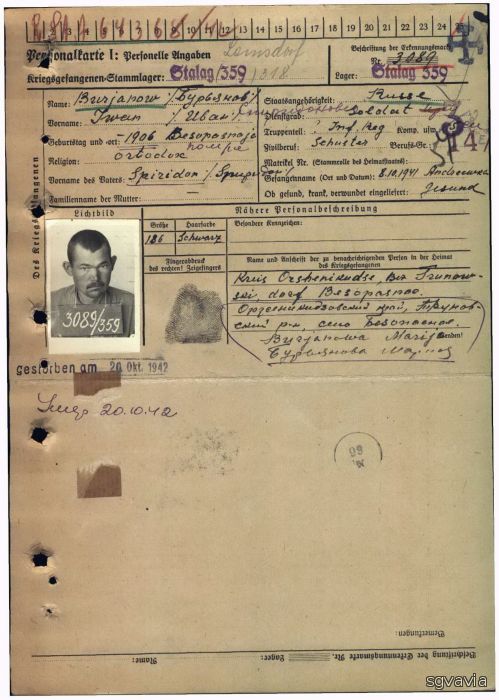 1 2 3 4 5 6 7 8 9 10 11 12 13 14 15 16 17 18 19 20 21 22 23 24 25
Personalkarte I: Personelle Angaben
Lamsdorf
Beschriftung der Erkennungsmarke
Kriegsgefangenen-Stammlager: Stalag 359 / 318
Nr. 3089
Lager: Stalag 359
Des Kriegsgefangenen
Name: Burjanow / Бурьянов /
Staatsangehörigkeit: Russe
Vorname: Iwan / Иван /
Dienstgrad: Soldat
Truppenteil: Inf. Reg Komp. usw.
Geburtstag und -ort: -1906 Besopasnoje
Zivilberuf: Schuster Berufs-Gr.:
Religion: ortodox
Matrikel Nr. (Stammrolle des Heimatstaates):
Vorname des Vaters: Spiridon /
Gefangennahme (Ort und Datum): 8.10.1941
Familienname der Mutter:
Ob gesund, krank, verwundet eingeliefert: Gesund
144
Lichtbild
Nähere Personalbeschreibung
Größe Haarfarbe
Besondere Kennzeichen:
186 Schwarz
Fingerabdruck
des rechten! Zeigefingers
Name und Anschrift der zu benachrichtigenden Person in der Heimat
des Kriegsgefangenen
Kreis
dorf Besopasnoe
Орджоникидзевский край, Труновский р-н, село Безопасное.
Burjanowa Marija
Бурьянова Мария
3089/359
gestorben am 20. Okt. 1942
20.10.42
Bemerkungen:
Beschriftung der Erkennungsmarke Nr.
Lager:
Name:
sgvavia